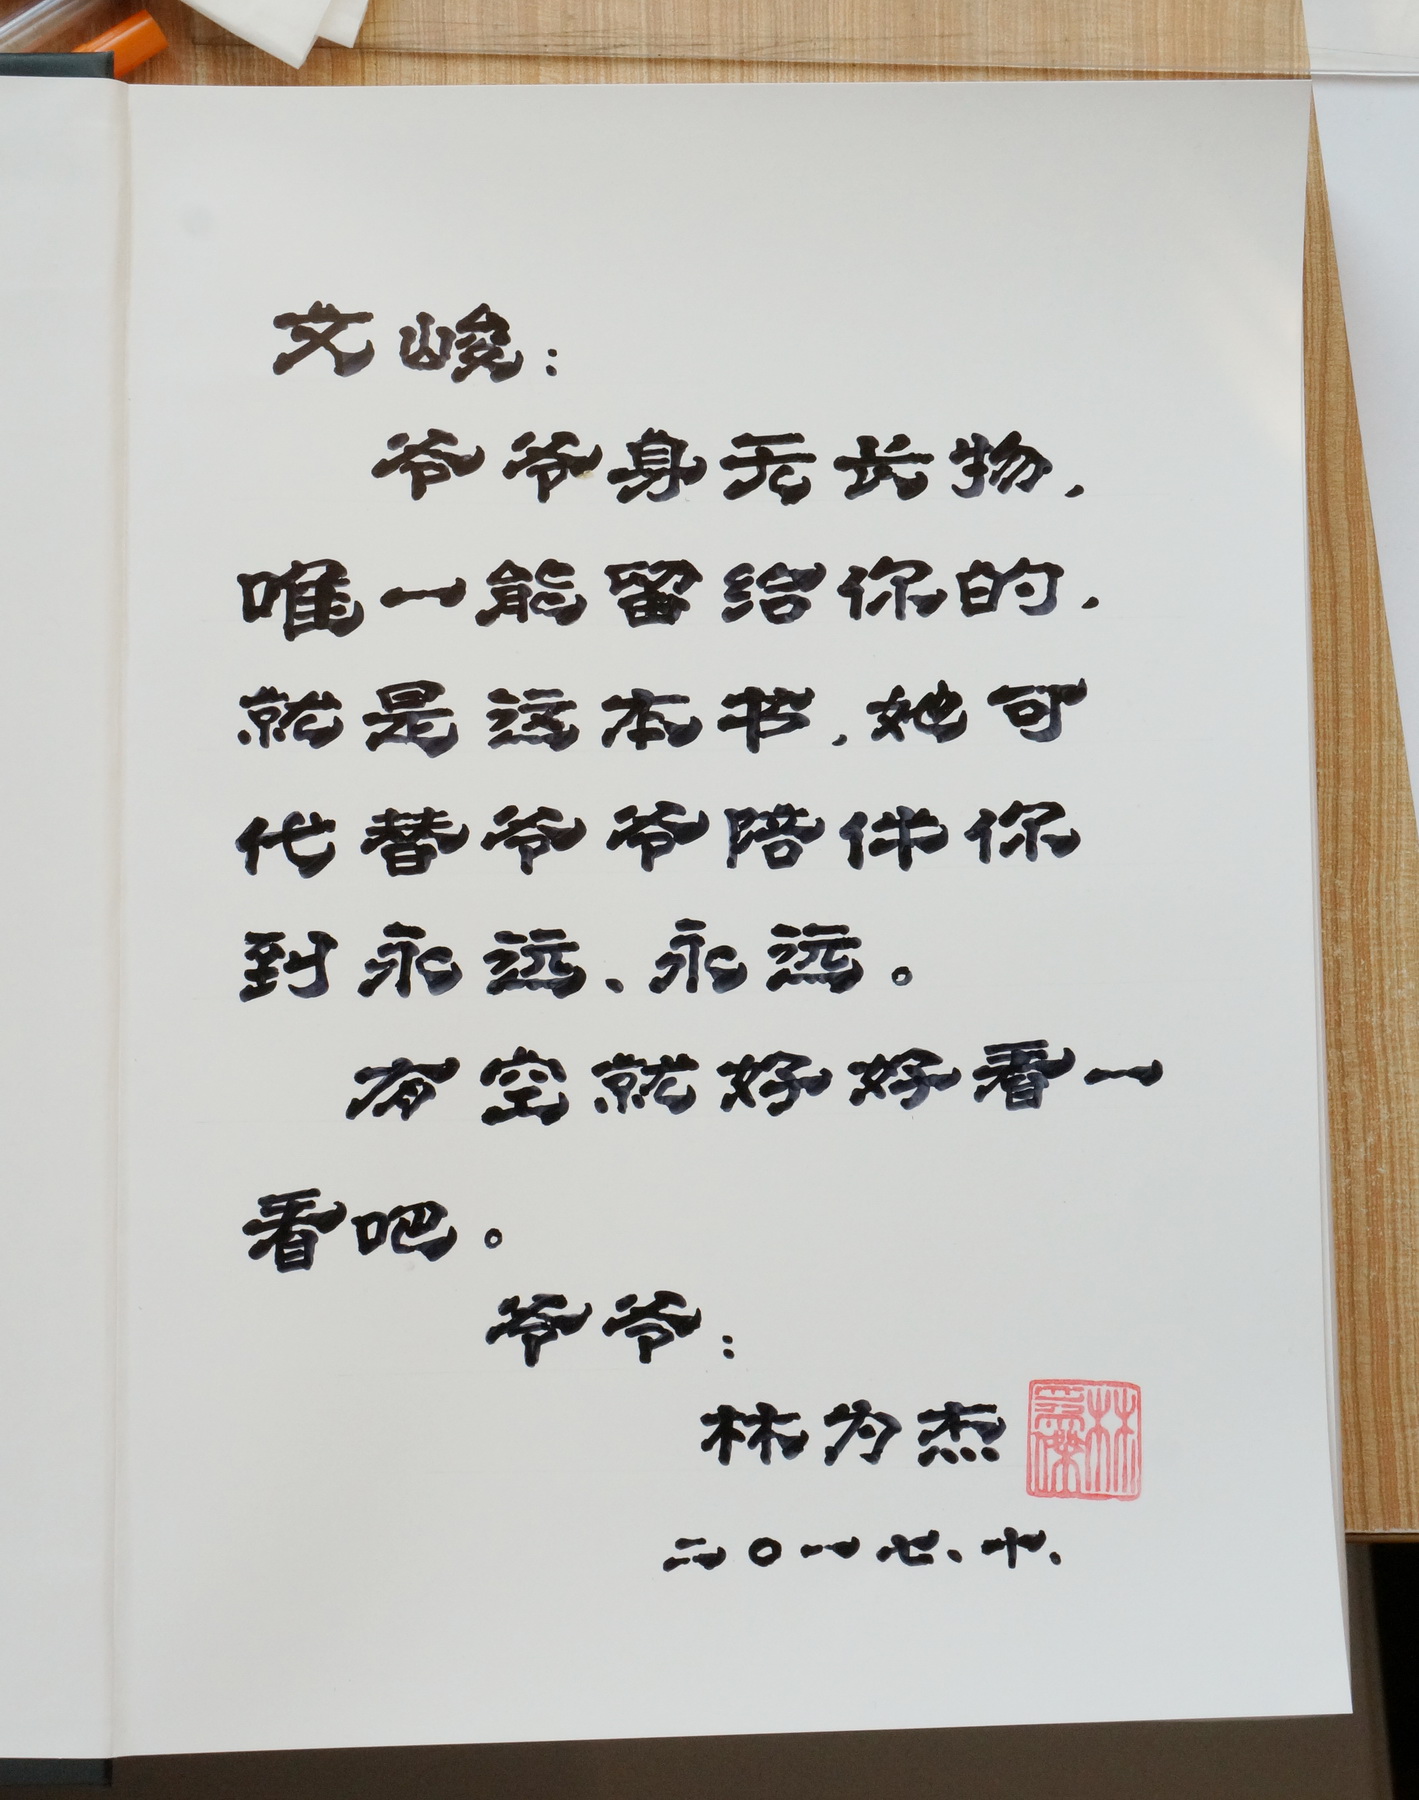 文峻：
爷爷身无长物，
唯一能留给你的，
就是这本书，她可
代替爷爷陪伴你
到永远、永远。
有空就好好看一
看吧。
爷爷：
林为杰
二〇一七、十、